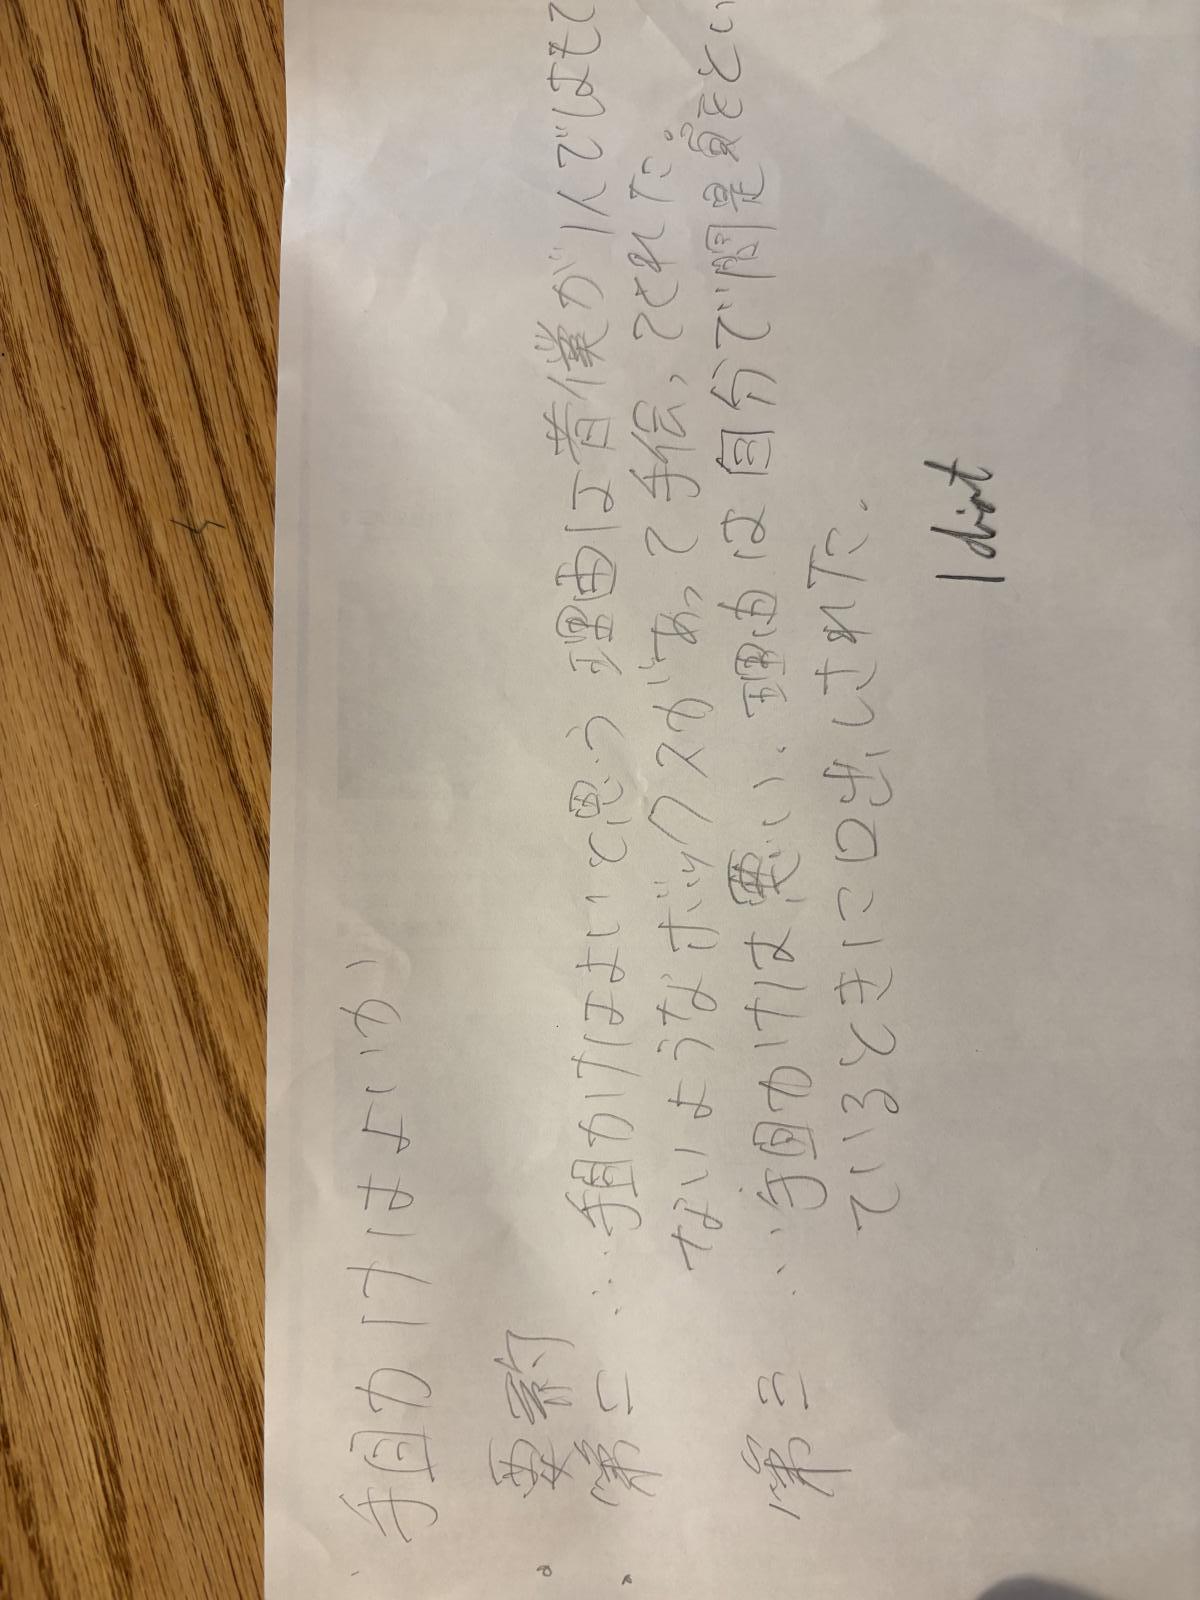 手目カけはよいか
要約
第二 ∴手目かけはよいと思う 理由は昔僕が1人ではもて
ないようなボックスがあって手伝ってくれた。
第三 ∴手目かけは悪い.理由は自分で問題をとい
ているときに口出しされた.
1 dirt